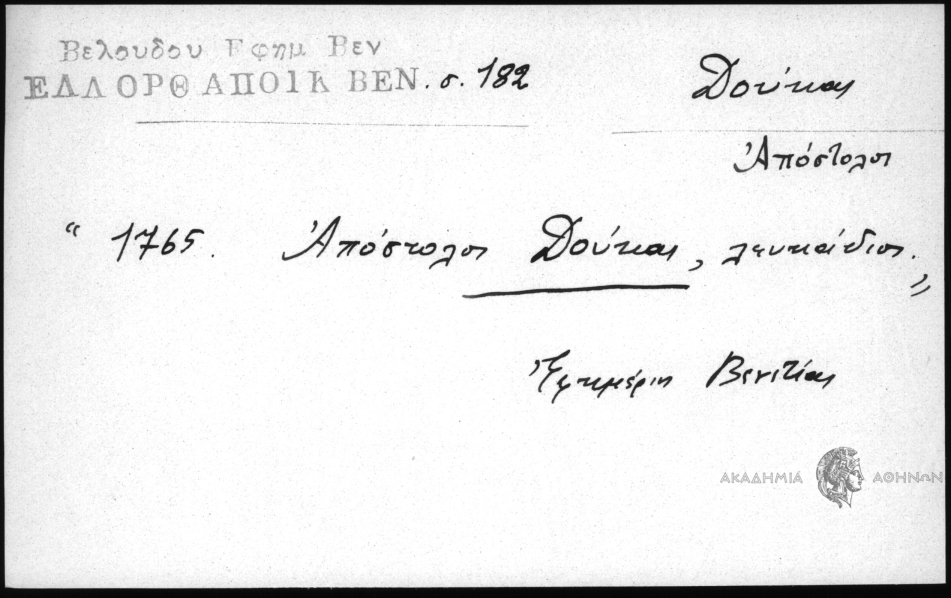 Βελουδου Εφημ Βεν
ΕΛΛ ΟΡΘ ΑΠΟΙΚ ΒΕΝ. σ. 182
Δούκας
Ἀπόστολος
“ 1765. Ἀπόστολος Δούκας, λευκάδιος. ”
Ἐφημέριος Βενετίας
ΑΚΑΔΗΜΙΑ ΑΘΗΝΩΝ